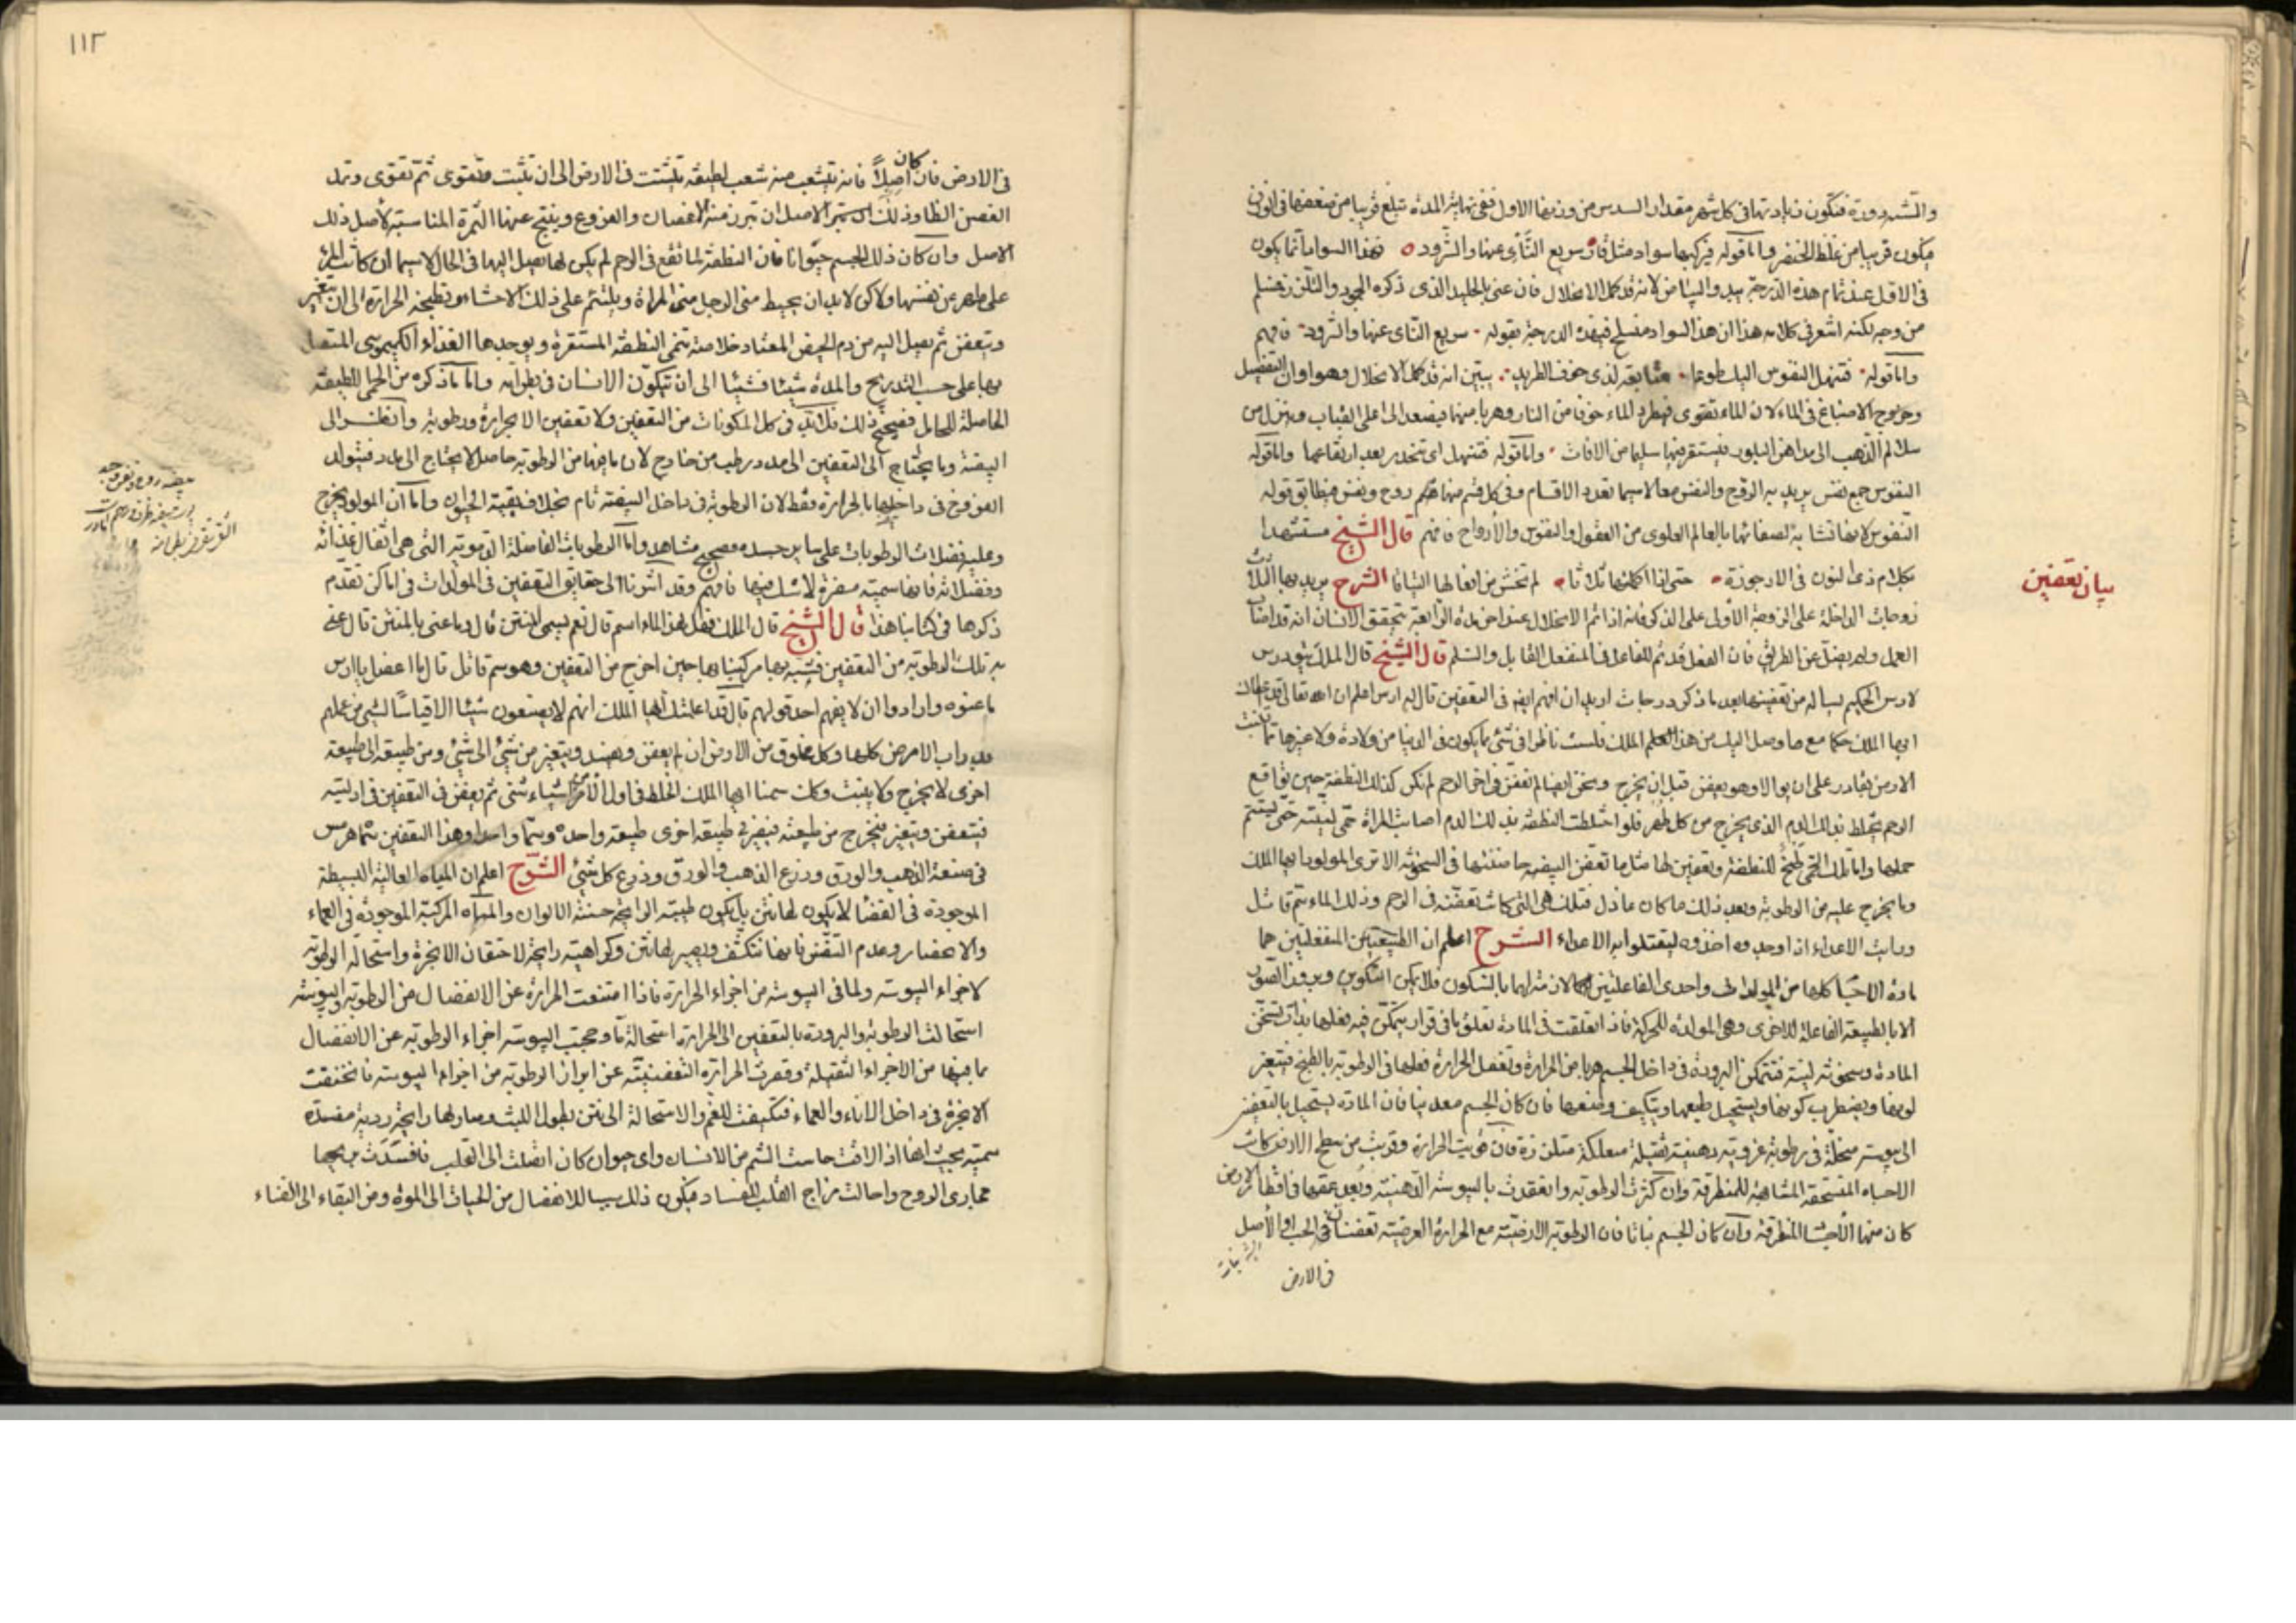 والتشدد ورة فتكون زيادتها فى كل شهر مقدار السدس من وزنها الاول ففى نهاية المدة تبلغ قريبا من ضعفها فى الوزن
فيكون قريبا من غلظ الخنصر واما قوله فتركيبها سواد مثل قار سريع التأى عنها والشرود فهذا السواد انما يكون
فى الاول عند تمام هذه الدرجة يبدو البياض لانه قد كمل الانحلال فان عنى بالجليد الذى ذكره الجمود والتلزز فنسلم
من وجه لكنه اشعر فى كلامه هذا ان هذا السواد منسلخ فى هذه الدرجة بقوله سريع التاى عنها والشرود فافهم
واما قوله فتنهل النفوس اليك طوعا متابعة لذى خوف الطريد يبين انه قد كمل الانحلال وهو اوان التفصيل
وخروج الاصباغ فى الماء لان الماء تقوى فيطرد الماء خوفا من النار وهربا منها فيصعد الى اعلى القباب وينزل من
سلالم الذهب الى مداهن البلور فيستقر فيها سليما من الافات واما قوله فتنهل اى تنحدر بعد ارتفاعها واما قوله
النفوس جمع نفس يريد به الروح والنفس معا لاسيما تعدد الاقسام وفى كل قسم منها روح ونفس فطابق قوله
النفوس لانها تشابه لصفائها بالعالم العلوى من العقول والنفوس والأرواح فافهم قال الشيخ مستشهدا
بكلام ذى النون فى الارجوزة حتى اذا اكملتها ثلاثا لم تخش من افعالها التياثا الشرح يريد بها الثلاث
زوجات الداخلة على الزوجة الأولى على الذكر فانه اذا تم الانحلال عند اخر مدة الرابعة تحقق الانسان انه قد اصاب
العمل ولم يضل عن الطريق فان الفعل قد تم للفاعل فى المنفعل القابل والسلم قال الشيخ قال الملك ثيودرس
لارس الحكيم يساله من تعفينها بعد ما ذكر درجات اريد ان افهم ايضا فى التعفين قال له ارس اعلم ان الله تعالى قد اعطاك
ايها الملك حكما مع ما وصل اليك من هذا العلم الملك فلست ناظرا فى شئ مما يكون فى الدنيا من ولادة ولا غيرها مما تنبت
الارض بقادر على ان يوالا وهو يعفن قبل ان يخرج ونحن ايضا لم نعفن فى اخر الرحم لم نكن كذلك النطفة حين تواقع
الرحم يختلط بذلك الدم الذى يخرج من كل طهر فلو اختلطت النطفة بذلك الدم اصابت المراة حمى لينة حتى يستتم
حملها واما تلك الحمى طبخ للنطفة وتعفين لها مثل ما تعفن البيضه حاضنتها فى السخونة الا ترى المولود ايها الملك
وما يخرج عليه من الرطوبة وبعد ذلك ما كان عاذل فتلك هى التى كانت تعفنه فى الرحم وذلك الماء سم قاتل
ودابت الاعداء اذا وجدوه اخذوه ليقتلوا به الاعداء الشرح اعلم ان الطبيعتين المنفعلتين هما
مادة الاشيا كلها من المولدات واحدى الفاعلتين لانه بالسكون فلا يكون التكوين وبروز الصور
الا بالطبيعة الفاعلة للاخرى وهى المولدة للحركة فاذا تعلقت فى المادة تعلق ما فى قرار يتمكن فيه فعلها بذات تسخن
المادة وسخونته لينة فتتمكن البرودة فى داخل الجسم هربا من الحرارة وتفعل الحرارة فعلها فى الرطوبة بالطبخ فيتغير
لونها ويضطرب كونها ويستحيل طبعها ويتكيف وضعها فان كان الجسم معدنيا فان المادة يستحيل بالتعفين
الى يبوسة منحلة فى رطوبة غروية دهنية ثقيلة متعلكة متلززة فان قويت الحرارة وقربت من سطح الارض كانت
الاجساد المنسحقة المشابهة للمنطرقة وان كثرت الرطوبة وانعقدت باليبوسة الدهنية وبعد عمقها فى اقطار الارض
كان منها الأجسا المنطرقة وان كان الجسم نباتا فان الرطوبة الارضية مع الحرارة العرضية تعفنان فى الحب او الأصل
فى الارض
بيان تعفين
١١٢
فى الارض فان كان اصلاً فانه يتشعب منه شعب لطيفة تتشتت فى الارض الى ان تثبت وتقوى ثم تقوى وتمد
الغصن الظاهر وذلك الى ثمر الاصل ان تبرز منه الاغصان والفروع وينتج عنها الثمرة المناسبة لأصل ذلك
الاصل وان كان ذلك الجسم حيوانا فان النطفة لما تقع فى الرحم لم يكن لها تعلق اليها فى الحال لاسيما ان كانت المراة
على طهر من نفسها ولاكن لابد ان يحيط منى الرجل منى المراة ويلتئم على ذلك الاحشاء وتطبخه الحرارة الى ان يتغير
ويتعفن ثم يصل اليه من دم الحيض المعتاد خلاصة تنمى النطفة المستقرة ويوجدها الغذاء الكيموسى المتصل
بها على حسب التدريج والمدة شيئا فشيئا الى ان تتكون الانسان فى بطن امه واما ما ذكره من الحمى اللطيفة
الحاصلة للحامل فصحيح ذلك فلابد فى كل المكونات من التعفين ولا تعفين الا بحرارة ورطوبة وانظر الى
البيضة وما يحتاج الى التعفين الى مدد رطب من خارج لان ما فيها من الرطوبة حاصل لا يحتاج الى مدد فيتولد
الفروخ فى داخلها بالحرارة فقط لان الرطوبة فى داخل البيضة تام بخلاف بقية الحيوان واما ان المولود يخرج
وعليه فضلات الرطوبات على ساير جسده فصحيح مشاهد واما الرطوبات الفاضلة الدموية التى هى اثفال غذائه
وفضلاته فانها سمية مضرة لا شك فيها فافهم وقد اشرنا الى حقايق التعفين فى المولدات فى اماكن تقدم
ذكرها فى كتابنا هذا قال الشيخ قال الملك فهل لهذا الماء اسم قال نعم يسمى المنتن قال وما عنى بالمنتن قال عنى
به تلك الرطوبة من التعفين فشبه بها مركبنا بها حين اخرج من التعفين وهو سم قاتل قال ما اعضل يا ارس
ما عنوه وارادوا ان لا يفهم احد قولهم قال قد اعلمتك ايها الملك انهم لا يصنعون شيئا الا قياسًا لشئ من عملهم
ودواب الارض كلها وكل مخلوق من الارض ان لم يعفن ويفسد ويتغير من شئ الى شئ ومن طبيعة الى طبيعة
اخرى لا يخرج ولا ينبت وكان سمنا ايها الملك الخلط فى اول الأمر اشياء شتى ثم يعفن فى التعفين فى ارليته
فيتعفن ويتغير فيخرج من طبيعته فيصير فى طبيعة اخرى طبيعة واحدة وسما واحدا وهذا التعفين سماه هرمس
فى صنعة الذهب والورق وزرع الذهب والورق وزرع كل شئ الشرح اعلم ان المياه العالية البسيطة
الموجودة فى الفضا لا يكون لها نتن بل يكون طيبة الرايحة حسنة الالوان والمياه المركبة الموجودة فى العماء
والانحصار وعدم التنفس فانها تتكثف ويصير لها نتن وكراهية رايحة لاحتقان الابخرة واستحالة الرطوبة
لاجزاء اليبوسة ولما فى اليبوسة من اجزاء الحرارة فاذا امتنعت الحرارة عن الانفصال من الرطوبة واليبوسة
استحالت الرطوبة والبرودة بالتعفين الى الحرارة استحالة ما وحجبت اليبوسة اجزاء الرطوبة عن الانفصال
بما فيها من الاجزاء الثقيلة وقصرت الحرارة التعفينية عن ابراز الرطوبة من اجزاء اليبوسة فانخنقت
الابخرة فى داخل الاناء والعماء فتكيفت للغم والاستحالة الى نتن بطول اللبث وصار لها رايحة ردية مفسدة
سمية بحيث انها اذا لاقت حاسة الشم من الانسان واى حيوان كان اتصلت الى القلب فافسدت مزاجها
مجارى الروح واحالت مزاج القلب للفساد فيكون ذلك سببا للانفصال من الحيات الى الموة ومن البقاء الى الفناء